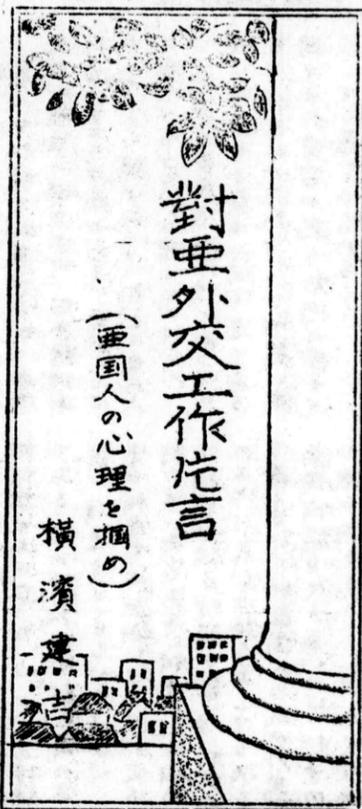 對亜外交工作片言
(亜国人の心理を掴め)
橫濱建吉